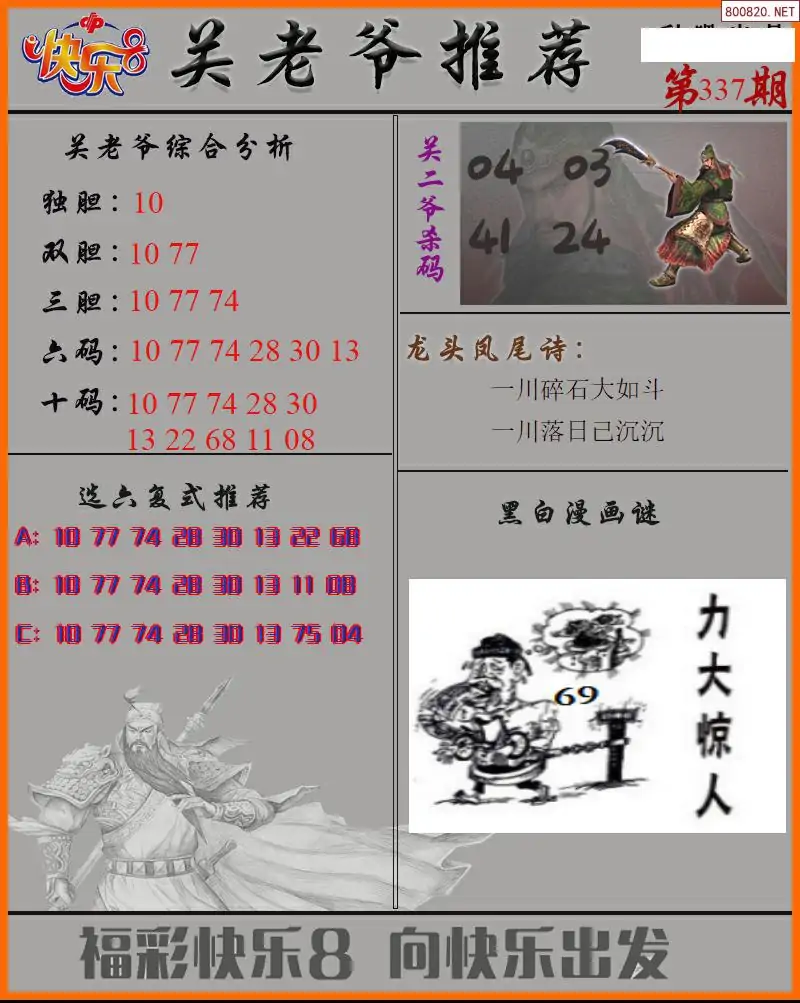 800820.NET
快乐8
关老爷推荐
第337期
关老爷综合分析
独胆：10
双胆：10 77
三胆：10 77 74
六码：10 77 74 28 30 13
十码：10 77 74 28 30
13 22 68 11 08
关二爷杀码
04 03
41 24
龙头凤尾诗：
一川碎石大如斗
一川落日已沉沉
选六复式推荐
A: 10 77 74 28 30 13 22 68
B: 10 77 74 28 30 13 11 08
C: 10 77 74 28 30 13 75 04
黑白漫画谜
力大惊人
69
福彩快乐8 向快乐出发